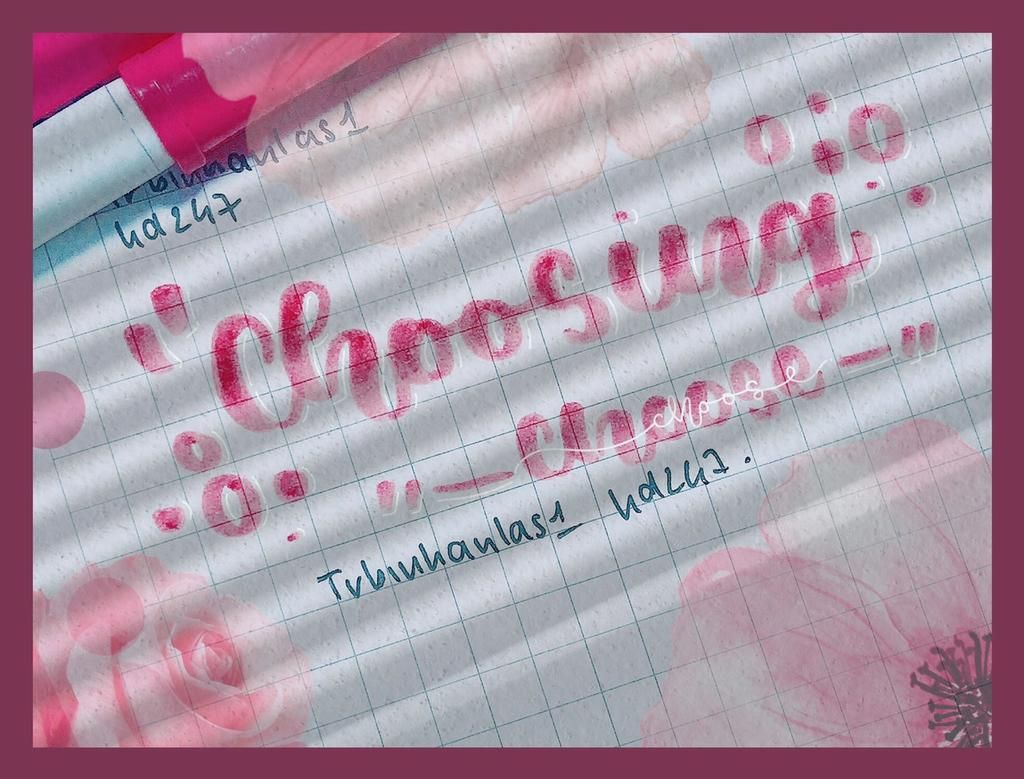 Trbinhanlas1
hd247
"Choosing"
"— Choose —"
choose
Trbinhanlas1_ hd247.